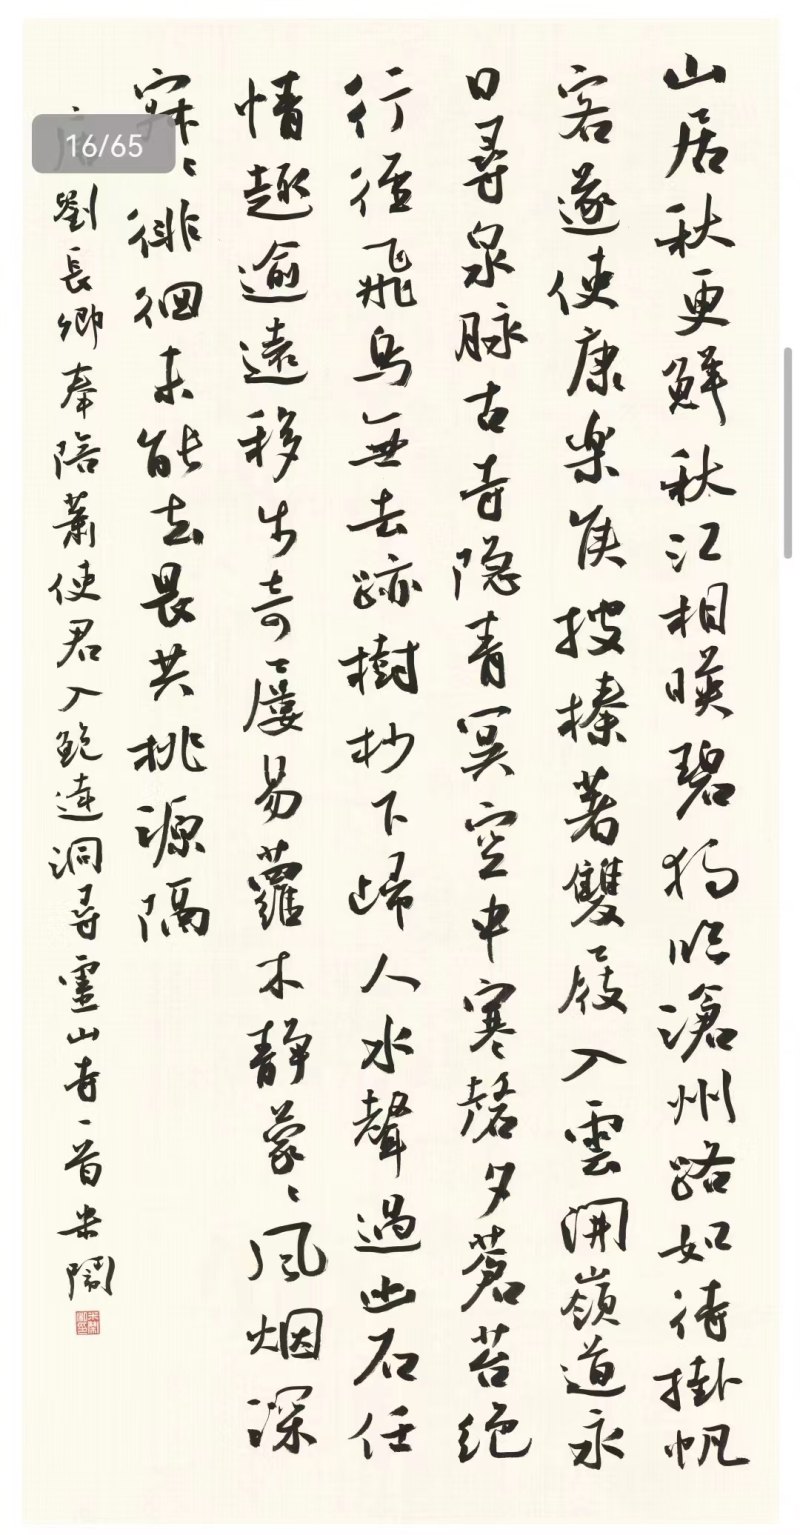 山居秋更鮮秋江相暎碧獨臨滄州路如待掛帆
客遂使康樂侯搜榛著雙屐入雲開嶺道永
日尋泉脉古寺隐青冥空中寒磬夕蒼苔絶
行徑飛鳥無去跡樹杪下歸人水聲過幽石任
情趣逾遠移步奇屢易蘿木静蒙〻風烟深
寂〻徘徊未能去畏共桃源隔
劉長卿奉陪蕭使君入鮑達洞尋靈山寺一首米鬧
16/65